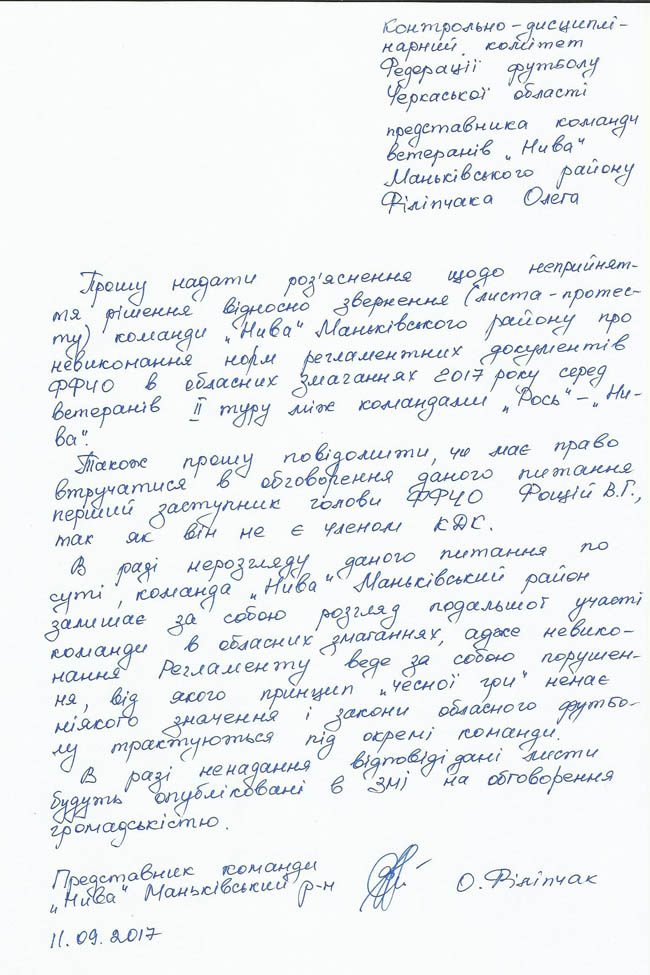 Контрольно-дисциплі-
нарний комітет
Федерації футболу
Черкаської області
представника команди
ветеранів „Нива"
Маньківського району
Філіпчака Олега
Прошу надати роз'яснення щодо неприйнят-
тя рішення відносно звернення (листа-протес-
ту) команди „Нива" Маньківського району про
невиконання норм регламентних документів
ФФЧО в обласних змаганнях 2017 року серед
ветеранів II туру між командами „Рось"–„Ни-
ва".
Також прошу повідомити, чи має право
втручатися в обговорення даного питання
перший заступник голови ФФЧО Фощій В.Г.,
так як він не є членом КДК.
В разі нерозгляду даного питання по
суті, команда „Нива" Маньківський район
залишає за собою розгляд подальшої участі
команди в обласних змаганнях, адже невико-
нання Регламенту веде за собою порушен-
ня, від якого принцип „чесної гри" ненає
ніякого значення і закони обласного футбо-
лу трактуються під окремі команди.
В разі ненадання відповіді дані листи
будуть опубліковані в ЗМІ на обговорення
громадськістю.
Представник команди
„Нива" Маньківський р-н О. Філіпчак
11.09.2017